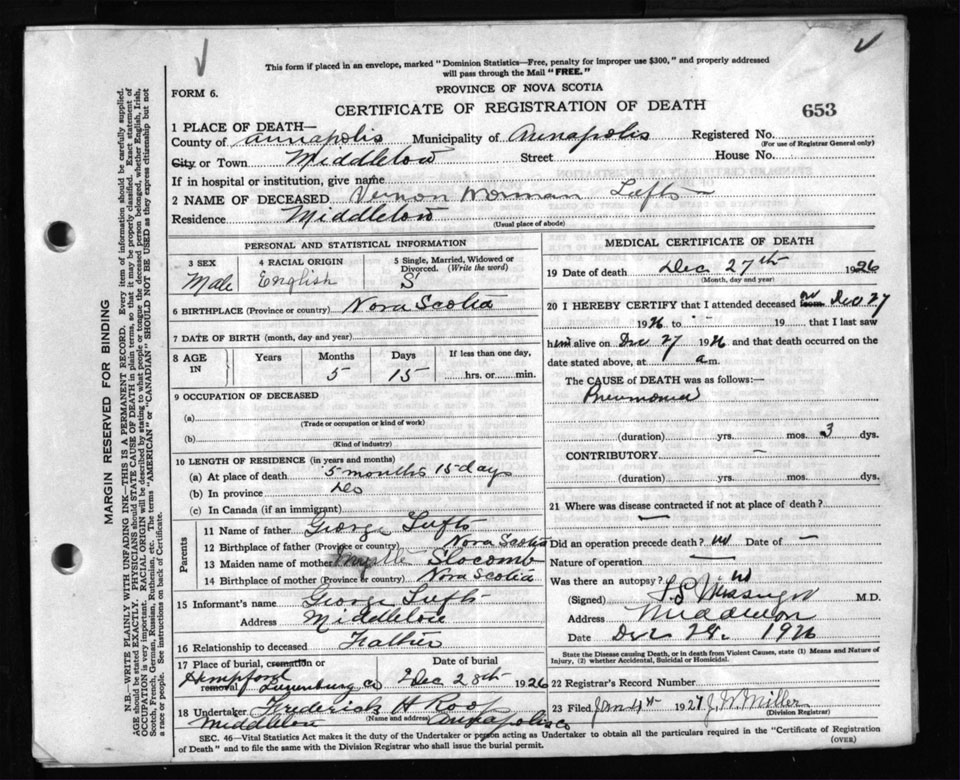 This form if placed in an envelope, marked "Dominion Statistics—Free, penalty for improper use $300," and properly addressed
will pass through the Mail "FREE."
FORM 6.
PROVINCE OF NOVA SCOTIA
CERTIFICATE OF REGISTRATION OF DEATH
653
1 PLACE OF DEATH—
County of Annapolis Municipality of Annapolis Registered No.
(For use of Registrar General only)
City or Town Middleton Street House No.
If in hospital or institution, give name
2 NAME OF DECEASED Vernon Norman Lufts
Residence Middleton
(Usual place of abode)
PERSONAL AND STATISTICAL INFORMATION
3 SEX
Male
4 RACIAL ORIGIN
English
5 Single, Married, Widowed or
Divorced. (Write the word)
S
6 BIRTHPLACE (Province or country) Nova Scotia
7 DATE OF BIRTH (month, day and year)
8 AGE
IN
Years
Months
5
Days
15
If less than one day,
hrs. or min.
9 OCCUPATION OF DECEASED
(a)
(Trade or occupation or kind of work)
(b)
(Kind of industry)
10 LENGTH OF RESIDENCE (in years and months)
(a) At place of death 5 months 15 days
(b) In province Do
(c) In Canada (if an immigrant)
Parents
11 Name of father George Lufts
12 Birthplace of father (Province or country) Nova Scotia
13 Maiden name of mother Myrtle Slocomb
14 Birthplace of mother (Province or country) Nova Scotia
15 Informant's name George Lufts
Address Middleton
16 Relationship to deceased Father
17 Place of burial, cremation or
removal Hempford Lunenburg Co
Date of burial
Dec 28th 1926
18 Undertaker Frederick H Roo
(Name and address)
Middleton Annapolis Co
MEDICAL CERTIFICATE OF DEATH
19 Date of death Dec 27th 1926
(Month, day and year)
20 I HEREBY CERTIFY that I attended deceased from on Dec 27
1926 to " " 19 that I last saw
him alive on Dec 27 1926 and that death occurred on the
date stated above, at a.m.
The CAUSE OF DEATH was as follows:—
Pneumonia
(duration) yrs. mos. 3 dys.
CONTRIBUTORY –
(duration) yrs. mos. dys.
21 Where was disease contracted if not at place of death?
—
Did an operation precede death? no Date of –
Nature of operation —
Was there an autopsy? no
(Signed) M.D.
Address Middleton
Date Dec 28. 1926
State the Disease causing Death, or in death from Violent Causes, state (1) Means and Nature of
Injury, (2) whether Accidental, Suicidal or Homicidal.
22 Registrar's Record Number
23 Filed Jan 4th 1927 J. W. Miller
(Division Registrar)
SEC. 46—Vital Statistics Act makes it the duty of the Undertaker or person acting as Undertaker to obtain all the particulars required in the "Certificate of Registration
of Death" and to file the same with the Division Registrar who shall issue the burial permit.
(OVER)
MARGIN RESERVED FOR BINDING
N.B.—WRITE PLAINLY WITH UNFADING INK—THIS IS A PERMANENT RECORD. Every item of information should be carefully supplied.
AGE should be stated EXACTLY. PHYSICIANS should STATE CAUSE OF DEATH in plain terms, so that it may be properly classified. Exact statement of
OCCUPATION is very important. RACIAL ORIGIN will be described by stating to what people or tongue the deceased person belonged, whether English, Irish,
Scotch, French, German, Russian, Ruthenian, etc. The terms "AMERICAN" or "CANADIAN" SHOULD NOT BE USED as they express citizenship but not
a race or people. See instructions on back of Certificate.